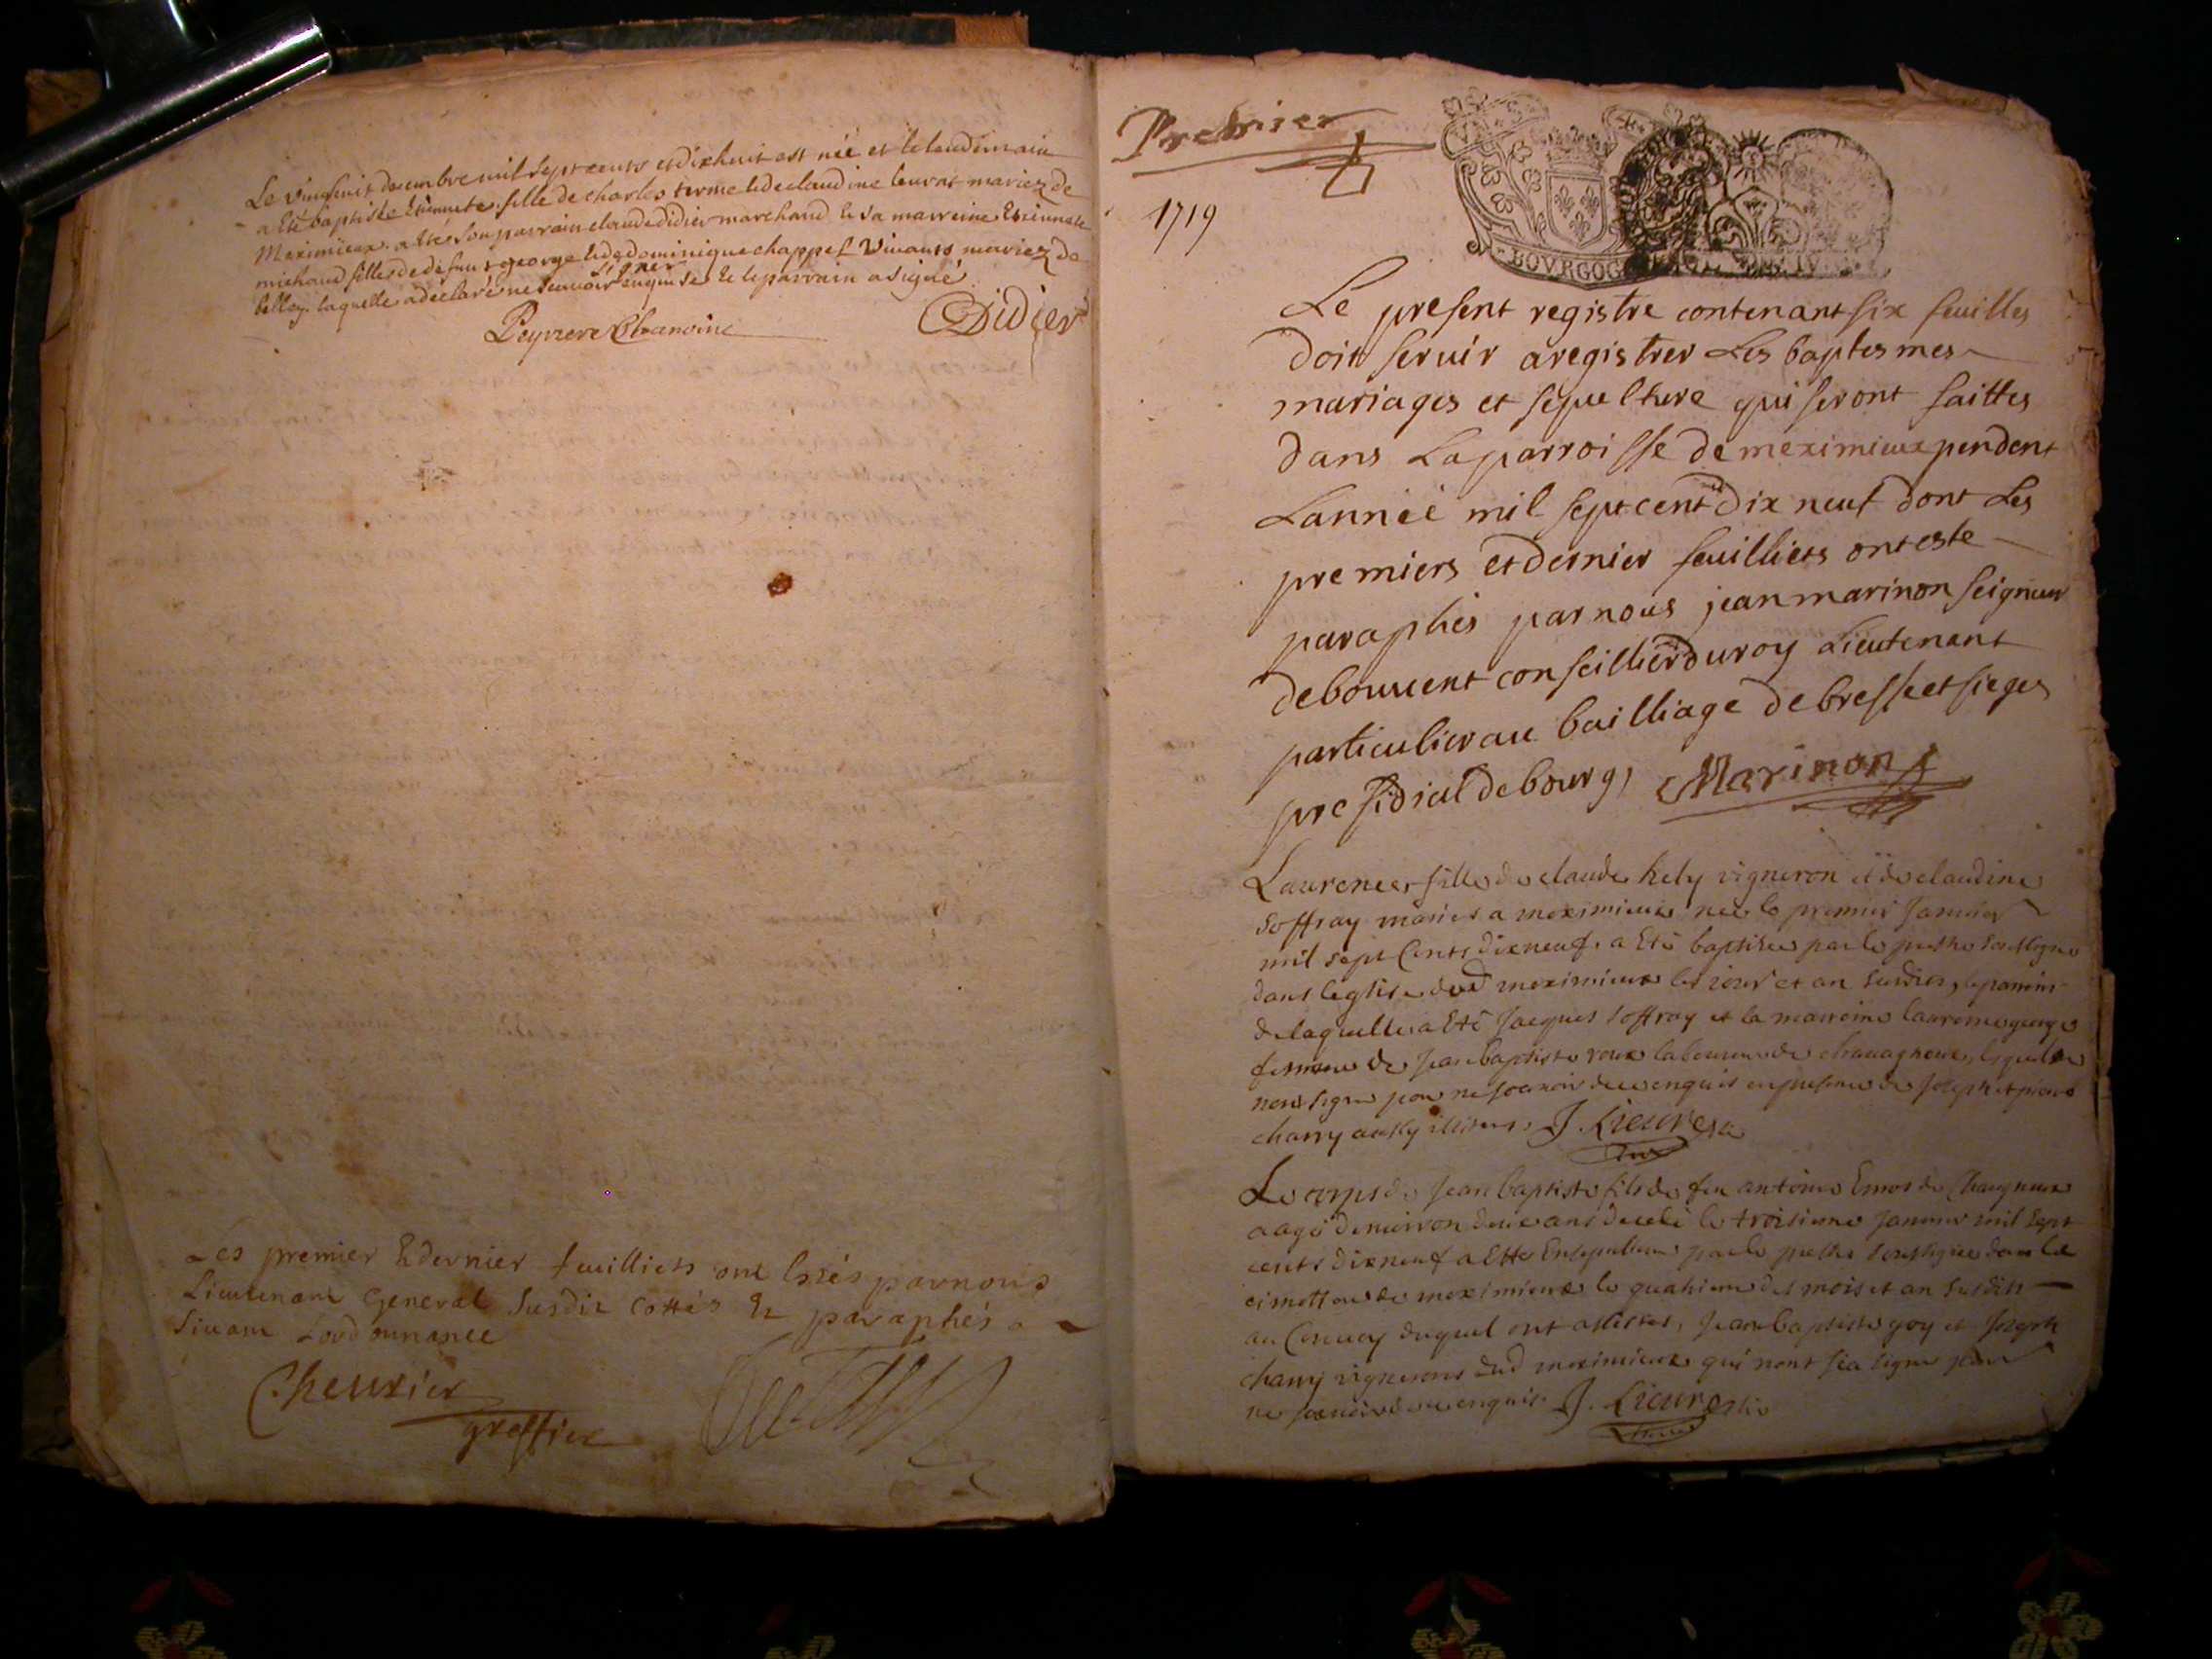 Le vingt huit decembre mil sept cents et dix huit est née et le lendemain
a été baptisée Etiennete fille de charles terme et de claudine leurat mariez de
Meximieux. a été son parrain claude didier marchand et sa marreine Etiennete
michaud filles de defunt george et de dominique chappel vivants mariez de
belley laquelle a declaré ne scavoir signer enquise et le parrain a signé
Peyzere Chanoine Didier
Les premier et dernier feuilliets ont estés par nous
Lieutenant General susdit cottés et paraphés
suivant Lordonnance
Cheurier
greffier
Premier
1719
BOVRGOG
Le present registre contenant six feuilles
doit servir a registrer Les baptesmes
mariages et sepulture qui seront faittes
dans La parroisse de meximieux pendent
Lanneé mil sept cent dix neuf dont Les
premiers et dernier feuilliets ont este
paraphés par nous jean marinon seigneur
de bouvent conseillier du roy Lieutenant
particulier au bailliage de bresse et sieges
presidial de bourg, Marinon
Laurence fille de claude hely vigneron et de claudine
Soffray mariés a meximieux née le premier Janvier
mil sept Cents dixneuf, a Eté baptisée par le prestre soussigné
dans leglise dud meximieux les jour et an susdits, le parrain
de laquelle a Eté Jacques Soffray et la marreine laurence
femme de Jean baptiste roux laboureur de chavagneux, lesquels
nont signé pour ne scavoir de ce enquis en presence de Joseph et pierre
charry J. Lieure
Le corps de Jean baptiste fils de feu antoine de
aagé denviron deux ans decedé le troisieme Janvier mil sept
cents dixneuf a Etté Ensepulturé par le prestre soussigné dans le
cimettiere de meximieux le quatrieme des mois et an susdits
au Convoy duquel ont assistés, Jean baptiste goy et Joseph
charry vignerons dud meximieux qui nont signé pour
ne scavoir de ce enquis. J. Lieure